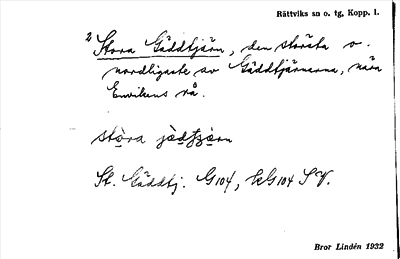 Rättviks sn o. tg, Kopp. l.
2 Stora Gäddtjärn, den största o.
nordligaste av Gäddtjärnarna, nära
Enviken rå.
stòra jèdtjàrn
St. Gäddtj. G104, kG104 SV.
Bror Lindén 1932